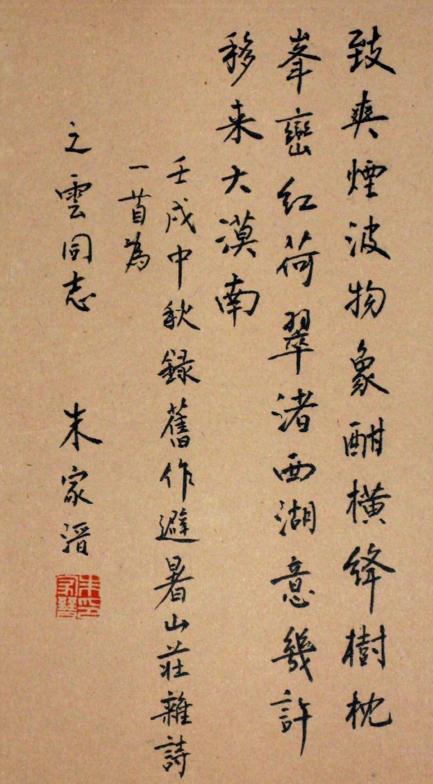 致爽煙波物象酣橫絳樹枕
峯巒紅荷翠渚西湖意幾許
移来大漠南
壬戌中秋録舊作避暑山莊雜詩
一首為
之雲同志 朱家溍